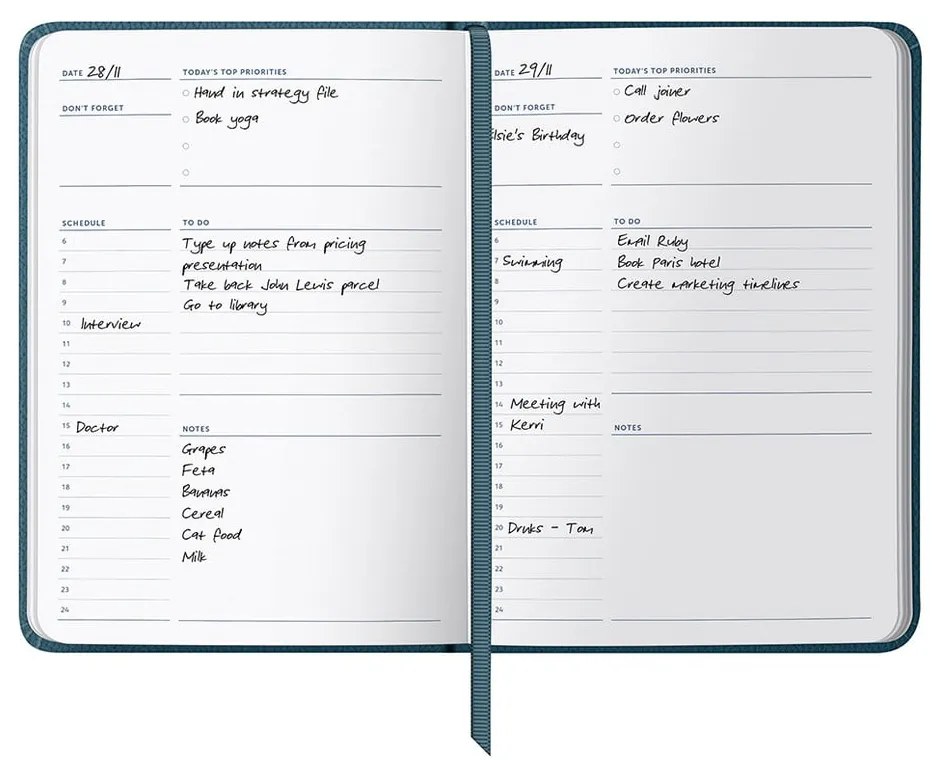 DATE 28/11
TODAY'S TOP PRIORITIES
Hand in strategy file
Book yoga
DON'T FORGET
SCHEDULE
6
7
8
9
10 Interview
11
12
13
14
15 Doctor
16
17
18
19
20
21
22
23
24
TO DO
Type up notes from pricing
presentation
Take back John Lewis parcel
Go to library
NOTES
Grapes
Feta
Bananas
Cereal
Cat food
Milk
DATE 29/11
TODAY'S TOP PRIORITIES
Call joiner
Order flowers
DON'T FORGET
lsie's Birthday
SCHEDULE
6
7 Swimming
8
9
10
11
12
13
14 Meeting with
15 Kerri
16
17
18
19
20 Drinks - Tom
21
22
23
24
TO DO
Email Ruby
Book Paris hotel
Create marketing timelines
NOTES